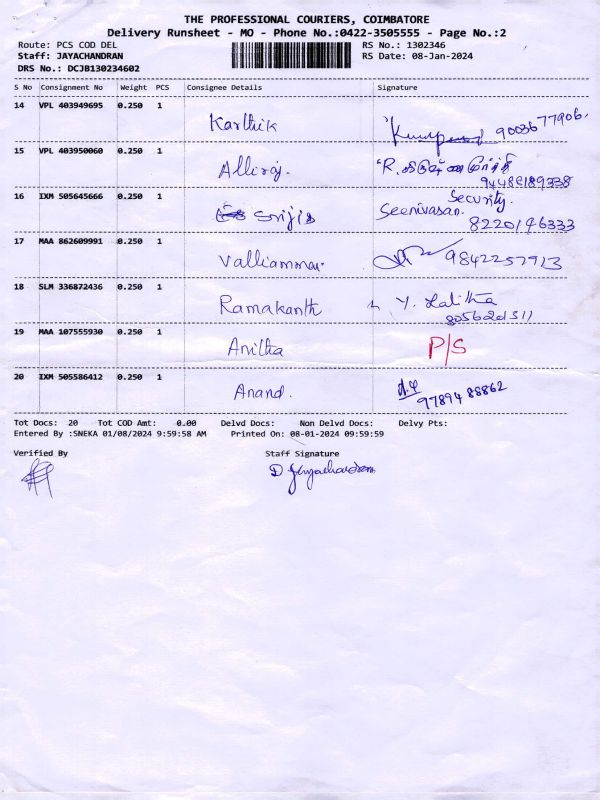 THE PROFESSIONAL COURIERS, COIMBATORE
Delivery Runsheet - MO - Phone No.:0422-3505555 - Page No.:2
Route: PCS COD DEL RS No.: 1302346
Staff: JAYACHANDRAN RS Date: 08-Jan-2024
DRS No.: DCJB130234602
S No Consignment No Weight PCS Consignee Details Signature
14 VPL 403949695 0.250 1 Karthik 9003677906.
15 VPL 403950060 0.250 1 Alliraj. R.
9448289338
16 IXM 505645666 0.250 1 Srijis Security.
Seenivasan. 8220146333
17 MAA 862609991 0.250 1 Valliammai. 9842257913
18 SLM 336872436 0.250 1 Ramakanth Y. Lalitha
8056201311
19 MAA 107555930 0.250 1 Anitha P/S
20 IXM 505586412 0.250 1 Anand. 97894 88862
Tot Docs: 20 Tot COD Amt: 0.00 Delvd Docs: Non Delvd Docs: Delvy Pts:
Entered By :SNEKA 01/08/2024 9:59:58 AM Printed On: 08-01-2024 09:59:59
Verified By Staff Signature
D Jeyachandran